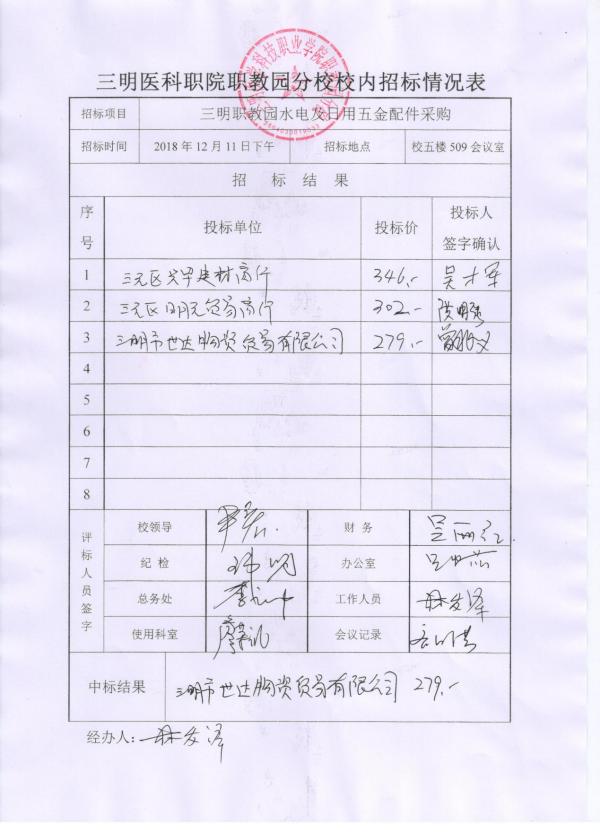 三明医科职院职教园分校校内招标情况表
招标项目 三明职教园水电及日用五金配件采购
招标时间 2018年12月11日下午 招标地点 校五楼509会议室
招 标 结 果
序号 投标单位 投标价 投标人签字确认
1 三元区 建材商行 346.-
2 三元区明元贸易商行 302.-
3 三明市世达物资贸易有限公司 279.-
4
5
6
7
8
评标人员签字
校领导 财 务
纪 检 办公室
总务处 工作人员 林发泽
使用科室 会议记录
中标结果 三明市世达物资贸易有限公司 279.-
经办人: 林发泽